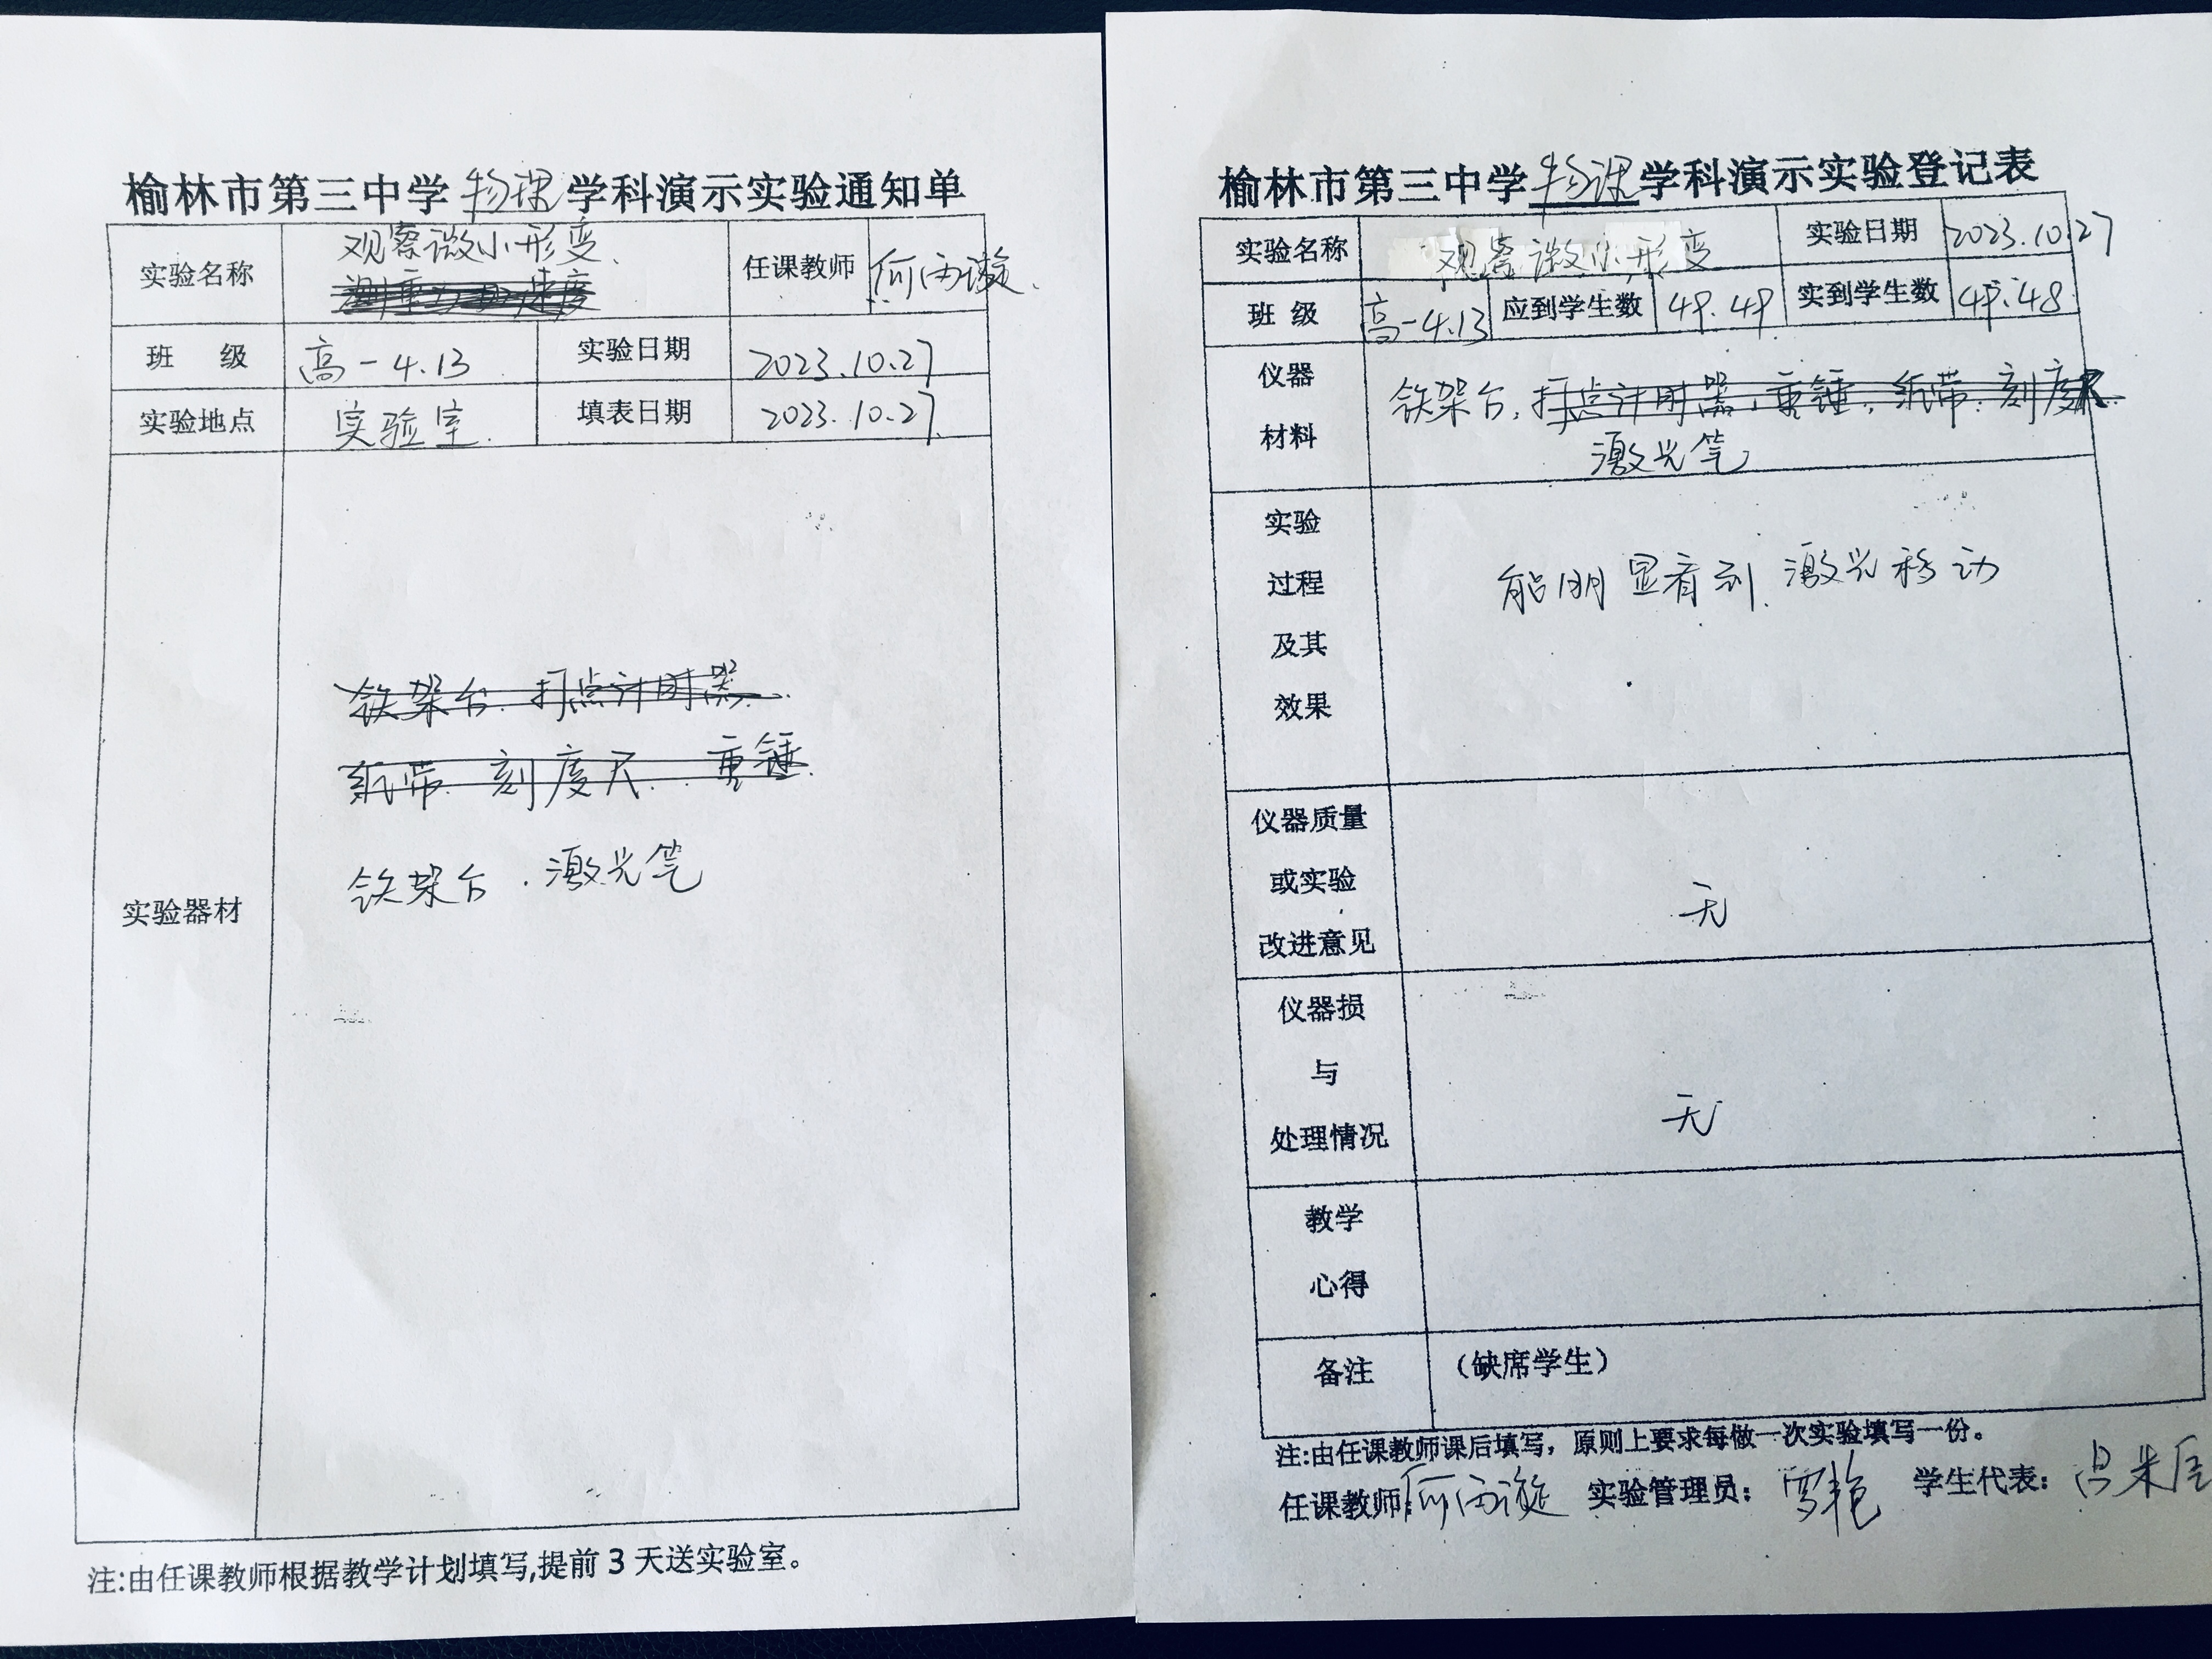 榆林市第三中学 物理 学科演示实验通知单
实验名称 观察微小形变 任课教师 何雨漩
测重力加速度
班 级 高一4.13 实验日期 2023.10.27
实验地点 实验室 填表日期 2023.10.27
实验器材
铁架台 打点计时器
纸带 刻度尺 重锤
铁架台 . 激光笔
注:由任课教师根据教学计划填写,提前3天送实验室。
榆林市第三中学 物理 学科演示实验登记表
实验名称 观察微小形变 实验日期 2023.10.27
班 级 高一4.13 应到学生数 49.49 实到学生数 49.48
仪器
材料
铁架台. 打点计时器. 重锤. 纸带. 刻度尺
激光笔
实验
过程
及其
效果
能明显看到激光移动
仪器质量
或实验
改进意见
无
仪器损
与
处理情况
无
教学
心得
备注 (缺席学生)
注:由任课教师课后填写,原则上要求每做一次实验填写一份。
任课教师: 何雨漩 实验管理员: 学生代表: